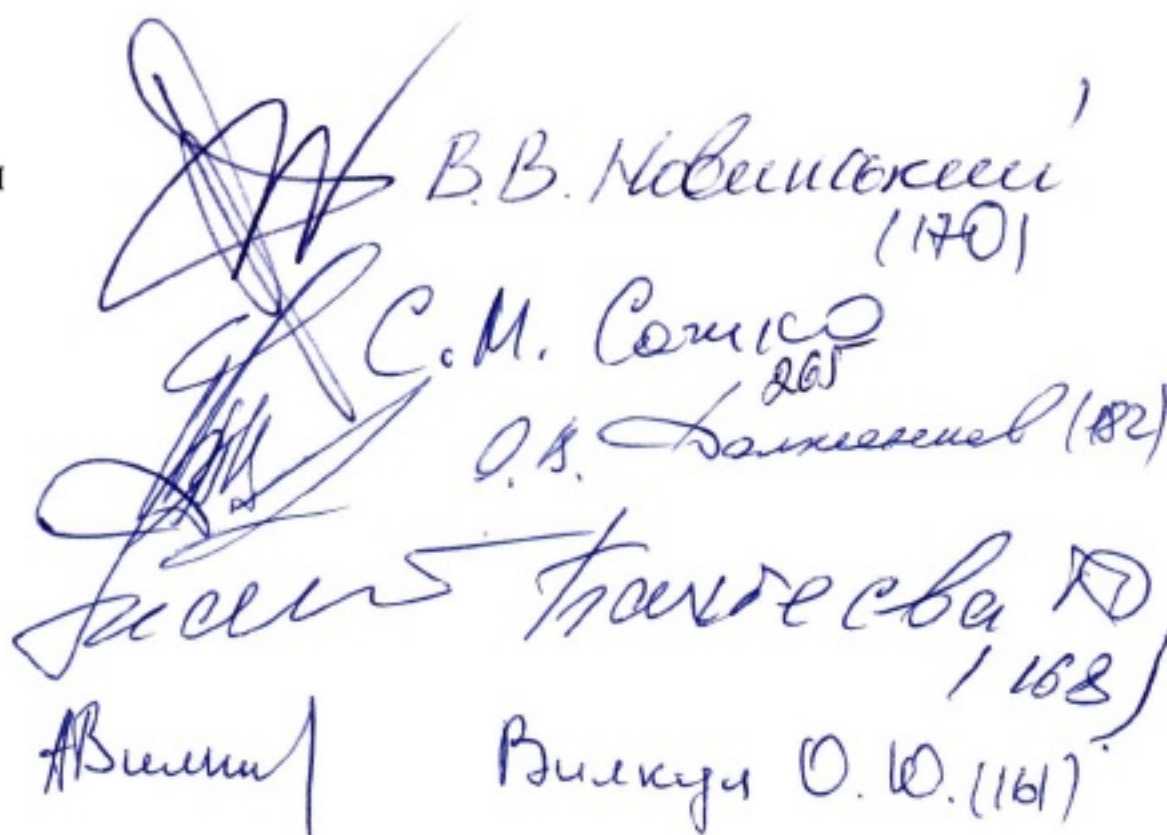 В.В. Новинський
(170)
С.М. Сажко
265
О.В. Долженков (182)
Пантєєва
(168)
Вилкул О.Ю. (161)